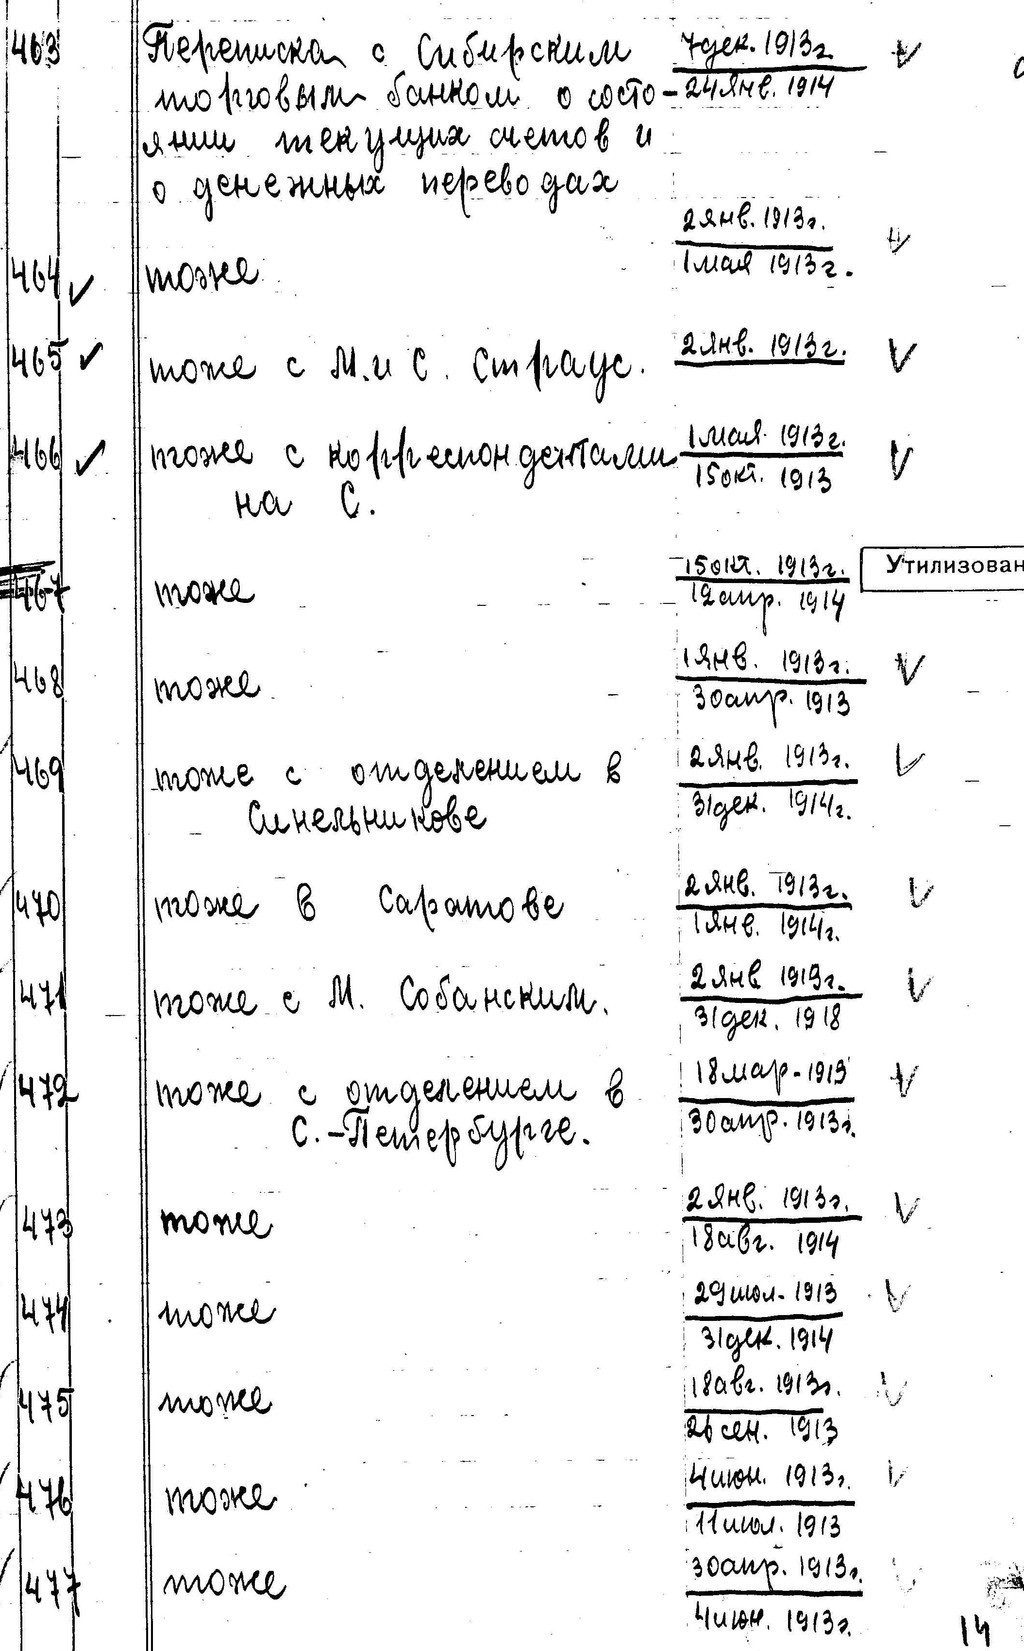 463 Переписка с Сибирским 7 дек. 1913 г.
торговым банком о состо- 24 янв. 1914
янии текущих счетов и
о денежных переводах
2 янв. 1913 г.
464 тоже 1 мая 1913 г.
465 тоже с М. и С. Страус. 2 янв. 1913 г.
466 тоже с корреспондентами 1 мая 1913 г.
на С. 15 окт. 1913
15 окт. 1913 г. Утилизован
467 тоже 12 апр. 1914
1 янв. 1913 г.
468 тоже 30 апр. 1913
469 тоже с отделением в 2 янв. 1913 г.
Синельникове 31 дек. 1914 г.
470 тоже в Саратове 2 янв. 1913 г.
1 янв. 1914 г.
471 тоже с М. Собанским. 2 янв 1913 г.
31 дек. 1918
472 тоже с отделением в 18 мар - 1913
С.-Петербурге. 30 апр. 1913 г.
473 тоже 2 янв. 1913 г.
18 авг. 1914
474 тоже 29 июл. 1913
31 дек. 1914
475 тоже 18 авг. 1913 г.
26 сен. 1913
476 тоже 4 июн. 1913 г.
11 июл. 1913
477 тоже 30 апр. 1913 г.
4 июн. 1913 г.
14